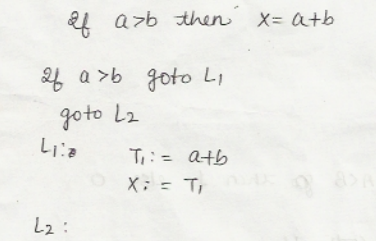 If a>b then x= a+b
If a>b goto L1
goto L2
L1: T1:= a+b
X:= T1
L2: